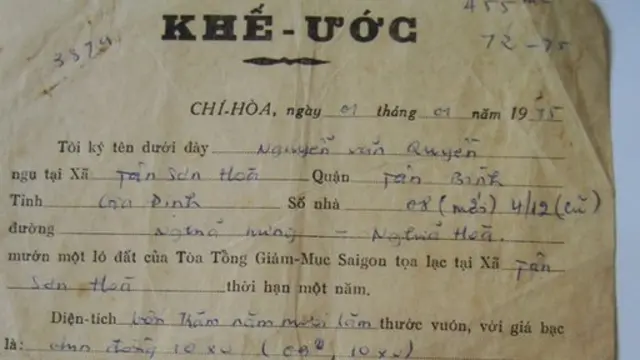 455 m2
3874
72-75
KHẾ-ƯỚC
CHÍ-HÒA, ngày 01 tháng 01 năm 1975
Tôi ký tên dưới đây Nguyễn văn Quyền
ngụ tại Xã Tân Sơn Hoà Quận Tân Bình
Tỉnh Gia Định Số nhà 08 (mới) 4/12 (cũ)
đường Nghĩa Hưng - Nghĩa Hoà.
mướn một lô đất của Tòa Tổng Giám-Mục Saigon tọa lạc tại Xã Tân
Sơn Hoà thời hạn một năm.
Diện-tích bốn trăm năm mươi lăm thước vuôn, với giá bạc
là: đồng 10 xu ( 10 xu)